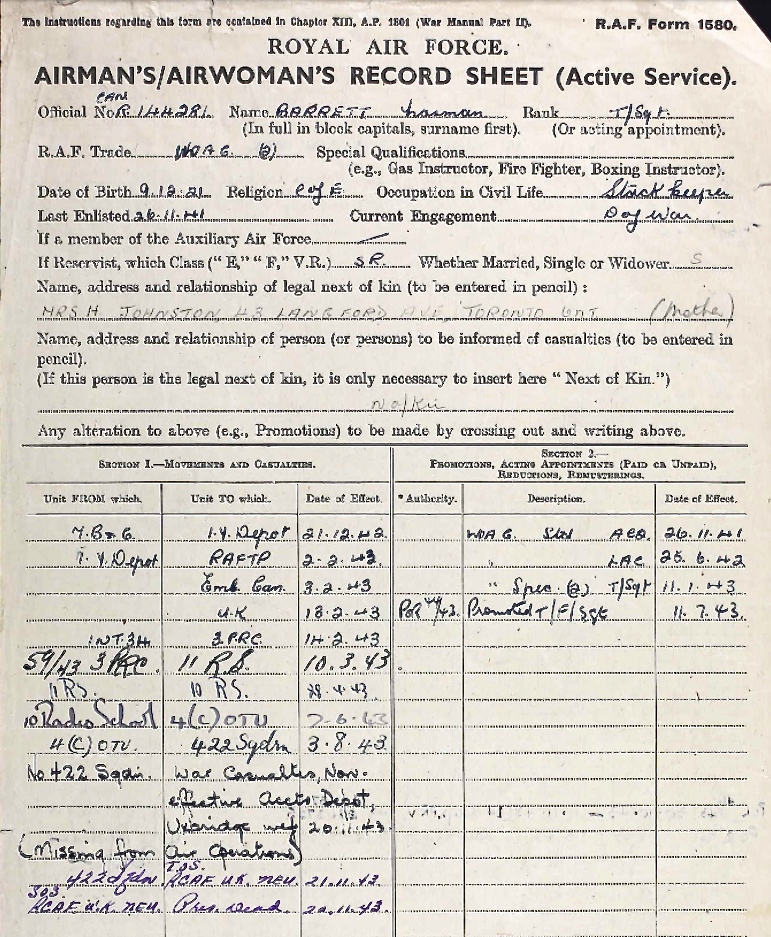 The instructions regarding this form are contained in Chapter XIII, A.P. 1801 (War Manual Part II).
R.A.F. Form 1580.
ROYAL AIR FORCE.
AIRMAN'S/AIRWOMAN'S RECORD SHEET (Active Service).
CAN
Official No. R.144281 Name BARRETT Norman Rank T/Sgt.
(In full in block capitals, surname first). (Or acting appointment).
R.A.F. Trade WOAG (2) Special Qualifications
(e.g., Gas Instructor, Fire Fighter, Boxing Instructor).
Date of Birth 9.12.21 Religion C of E. Occupation in Civil Life Stock keeper
Last Enlisted 26.11.41 Current Engagement D of War.
If a member of the Auxiliary Air Force —
If Reservist, which Class ("E," "F," V.R.) SR. Whether Married, Single or Widower S
Name, address and relationship of legal next of kin (to be entered in pencil) :
MRS H. JOHNSTON 43 LANGFORD AVE, TORONTO ONT (Mother)
Name, address and relationship of person (or persons) to be informed of casualties (to be entered in
pencil).
(If this person is the legal next of kin, it is only necessary to insert here "Next of Kin.")
N of Kin
Any alteration to above (e.g., Promotions) to be made by crossing out and writing above.
SECTION 1.—MOVEMENTS AND CASUALTIES.
SECTION 2.—
PROMOTIONS, ACTING APPOINTMENTS (PAID OR UNPAID),
REDUCTIONS, REMUSTERINGS.
Unit FROM which. Unit TO which. Date of Effect. *Authority. Description. Date of Effect.
B & G 1.Y. Depot 21.12.42 WOAG. Std AC2. 26.11.41
1.Y. Depot RAFTP 2.2.43 " LAC 25.6.42
Emb. Can. 3.2.43 " Spec. (2) T/Sgt 11.1.43
U.K 13.2.43 POR /43. Promoted T/F/Sgt 11.7.43.
3 PRC. 14.2.43
59/43 3 PRC. 11 R.S. 10.3.43
11 RS. 10 RS. 28.4.43
10 Radio School 4(C) OTU 7-6-43
4(C) OTU. 422 Sqdn 3.8.43
No 422 Sqdn. War Casualties, Non-
effective Accts Depot,
Uxbridge wef 20.11.43
(Missing from Air Operations)
TOS
422 Sqdn RCAF U.K. NEU. 21.11.43
SOS
RCAF U.K. NEU. Pres. Dead. 20.11.43.